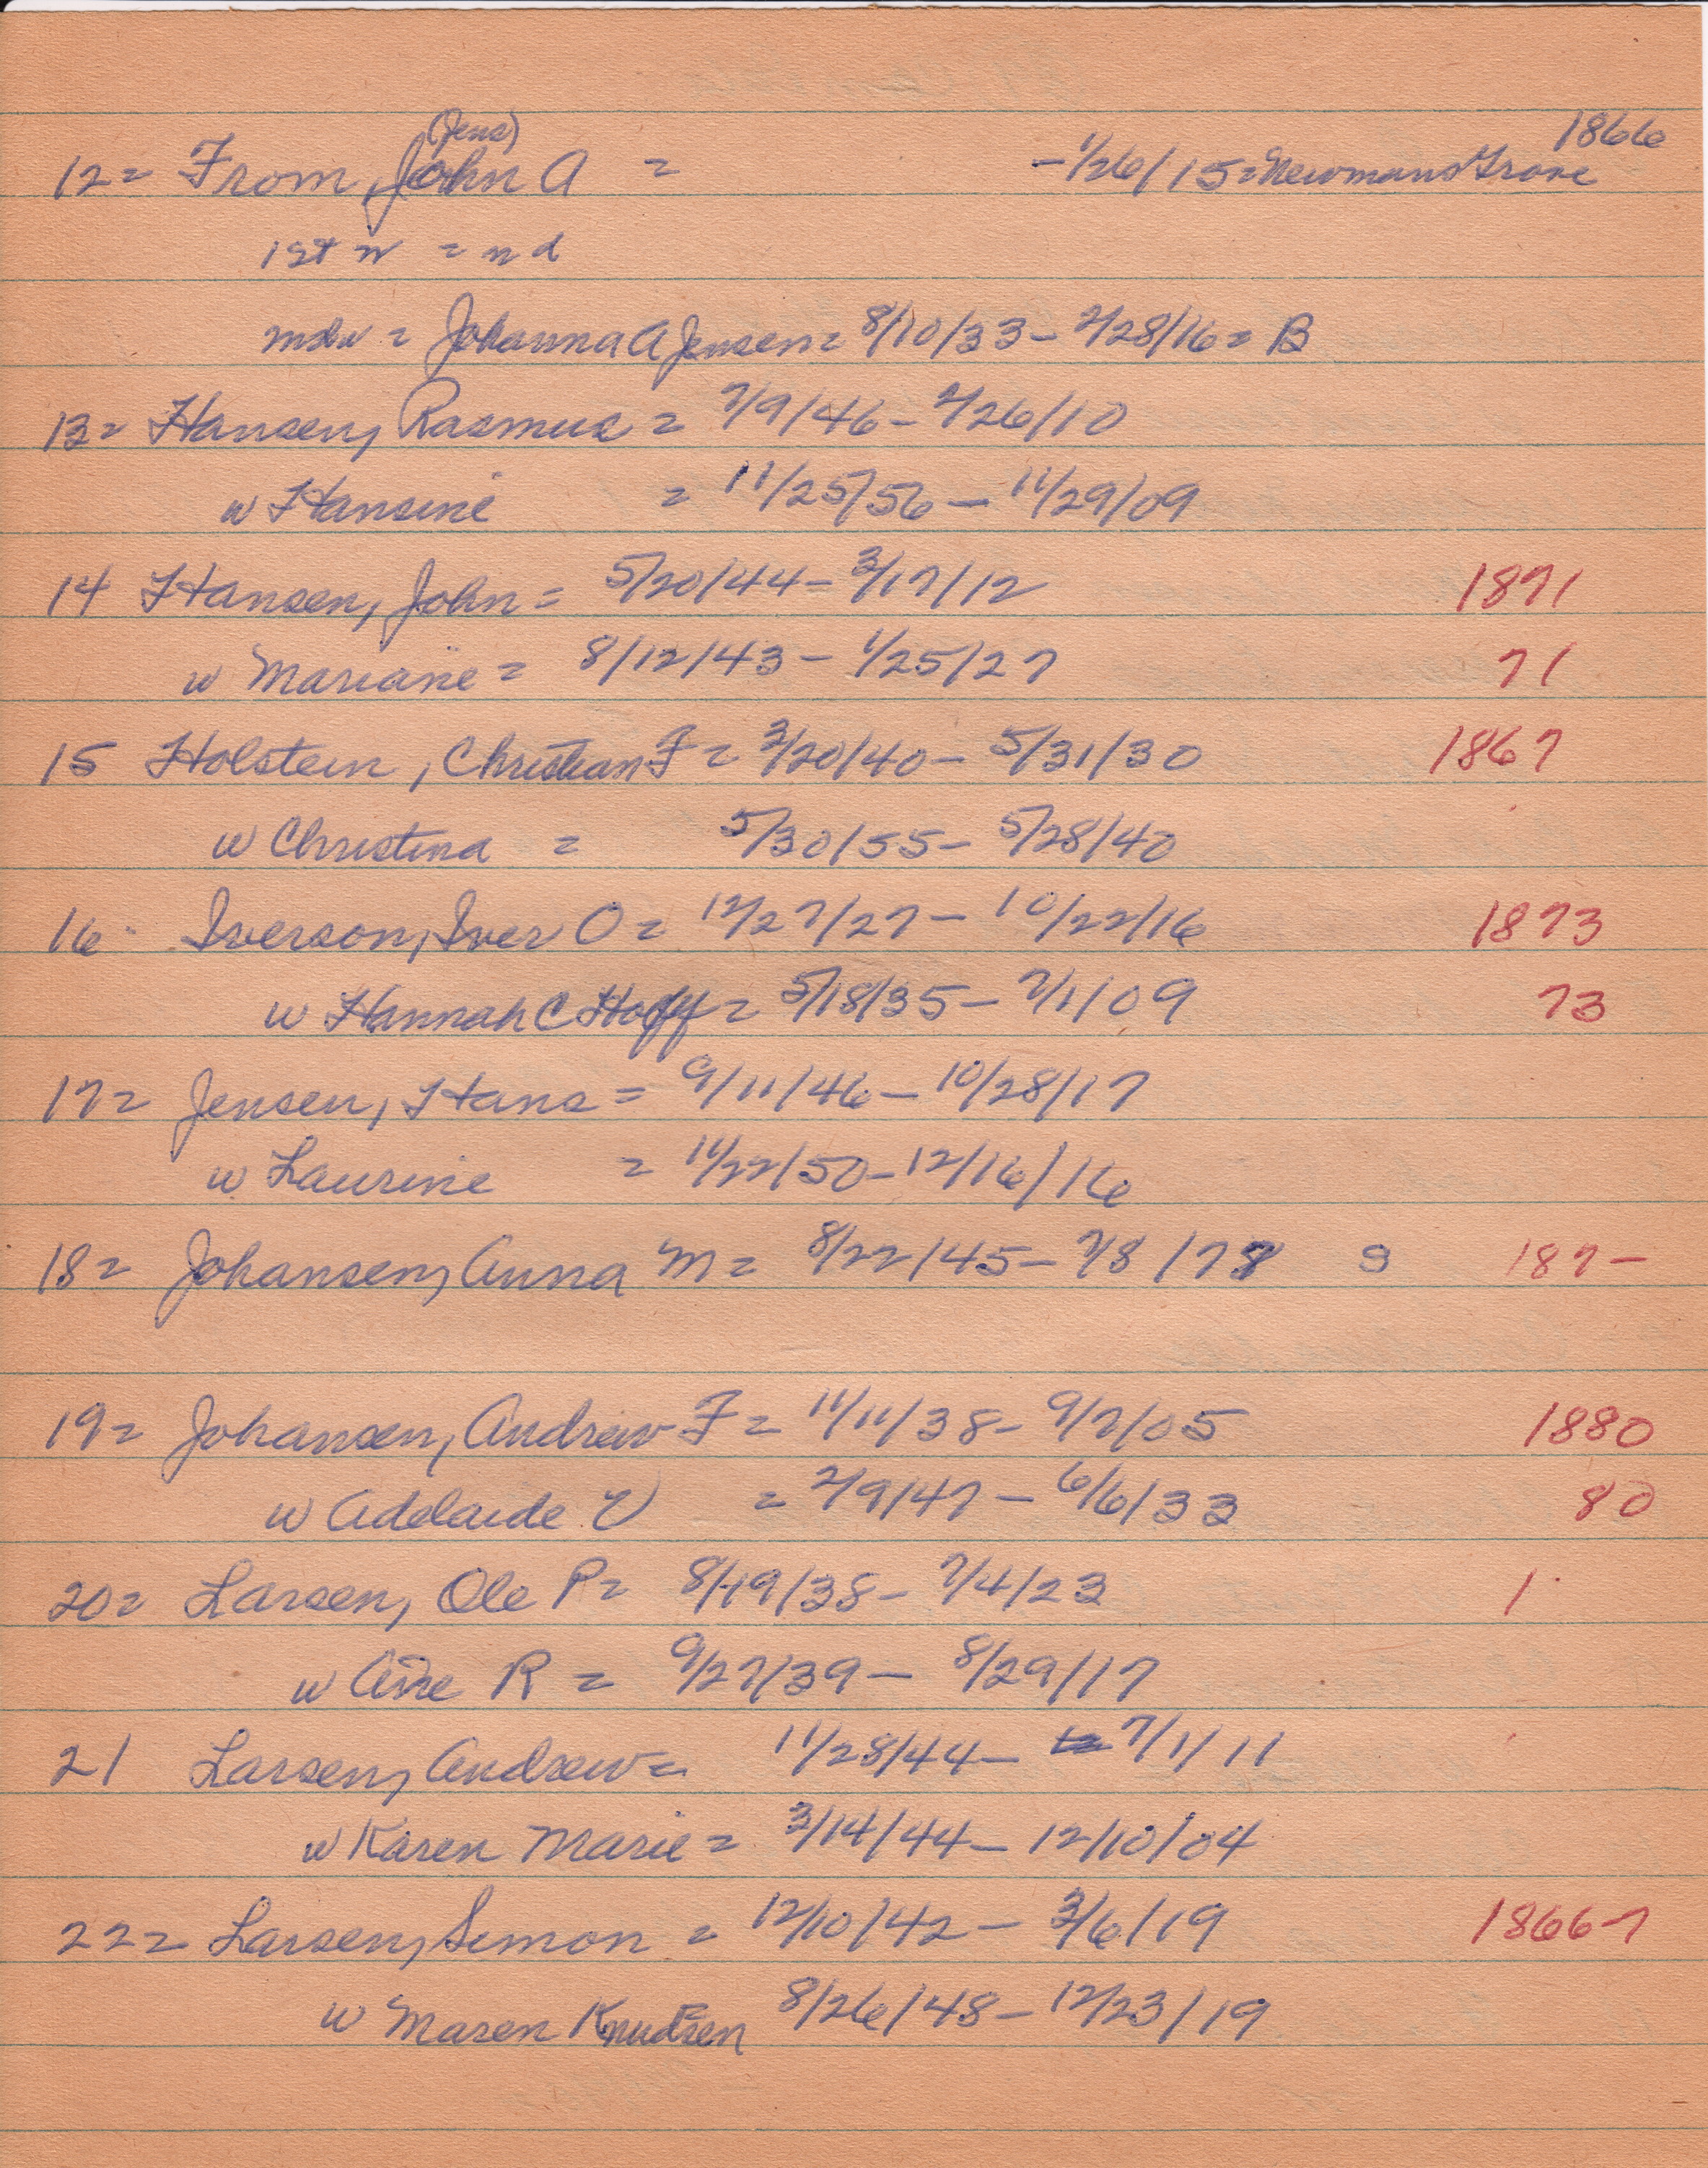 (Jens) 1866
12= From, John A = - 1/26/15 = Newmans Grove
1st w = nd
mdw = Johanna A Jensen = 8/10/33 - 2/28/16 = B
13= Hansen, Rasmus = 7/9/46 - 2/26/10
w Hansine = 11/25/56 - 11/29/09
14 Hansen, John = 5/20/44 - 3/17/12 1871
w Mariane = 8/12/43 - 1/25/27 71
15 Holstein, Christian F = 3/20/40 - 5/31/30 1867
w Christina = 5/30/55 - 5/28/40
16 Iverson, Iver O = 12/27/27 - 10/22/16 1873
w Hannah C Hoff = 5/18/35 - 7/1/09 73
17= Jensen, Hans = 9/11/46 - 10/28/17
w Laurine = 11/22/50 - 12/16/16
18= Johansen, Anna M = 8/22/45 - 7/8/78 S 187-
19= Johansen, Andrew F = 11/11/38 - 9/7/05 1880
w Adelaide V = 2/9/47 - 6/6/33 80
20= Larsen, Ole P = 8/19/38 - 7/4/23 1
w Ane R = 9/27/39 - 8/29/17
21 Larsen, Andrew = 11/28/44 - 7/1/11
w Karen Marie = 3/14/44 - 12/10/04
22= Larsen, Simon = 12/10/42 - 3/6/19 1866-7
w Maren Knudsen 8/26/48 - 12/23/19